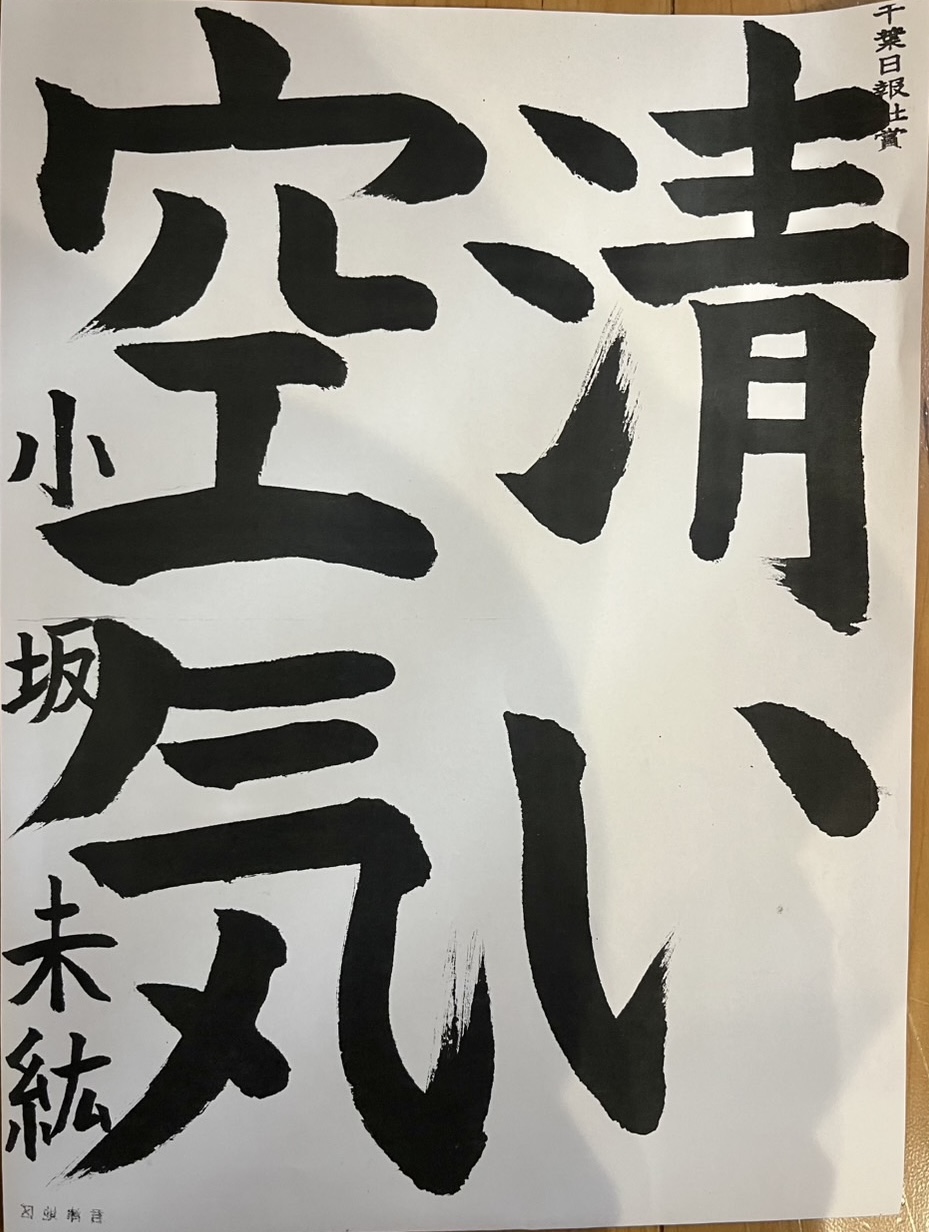 千葉日報社賞
清い
空気
小坂未紘